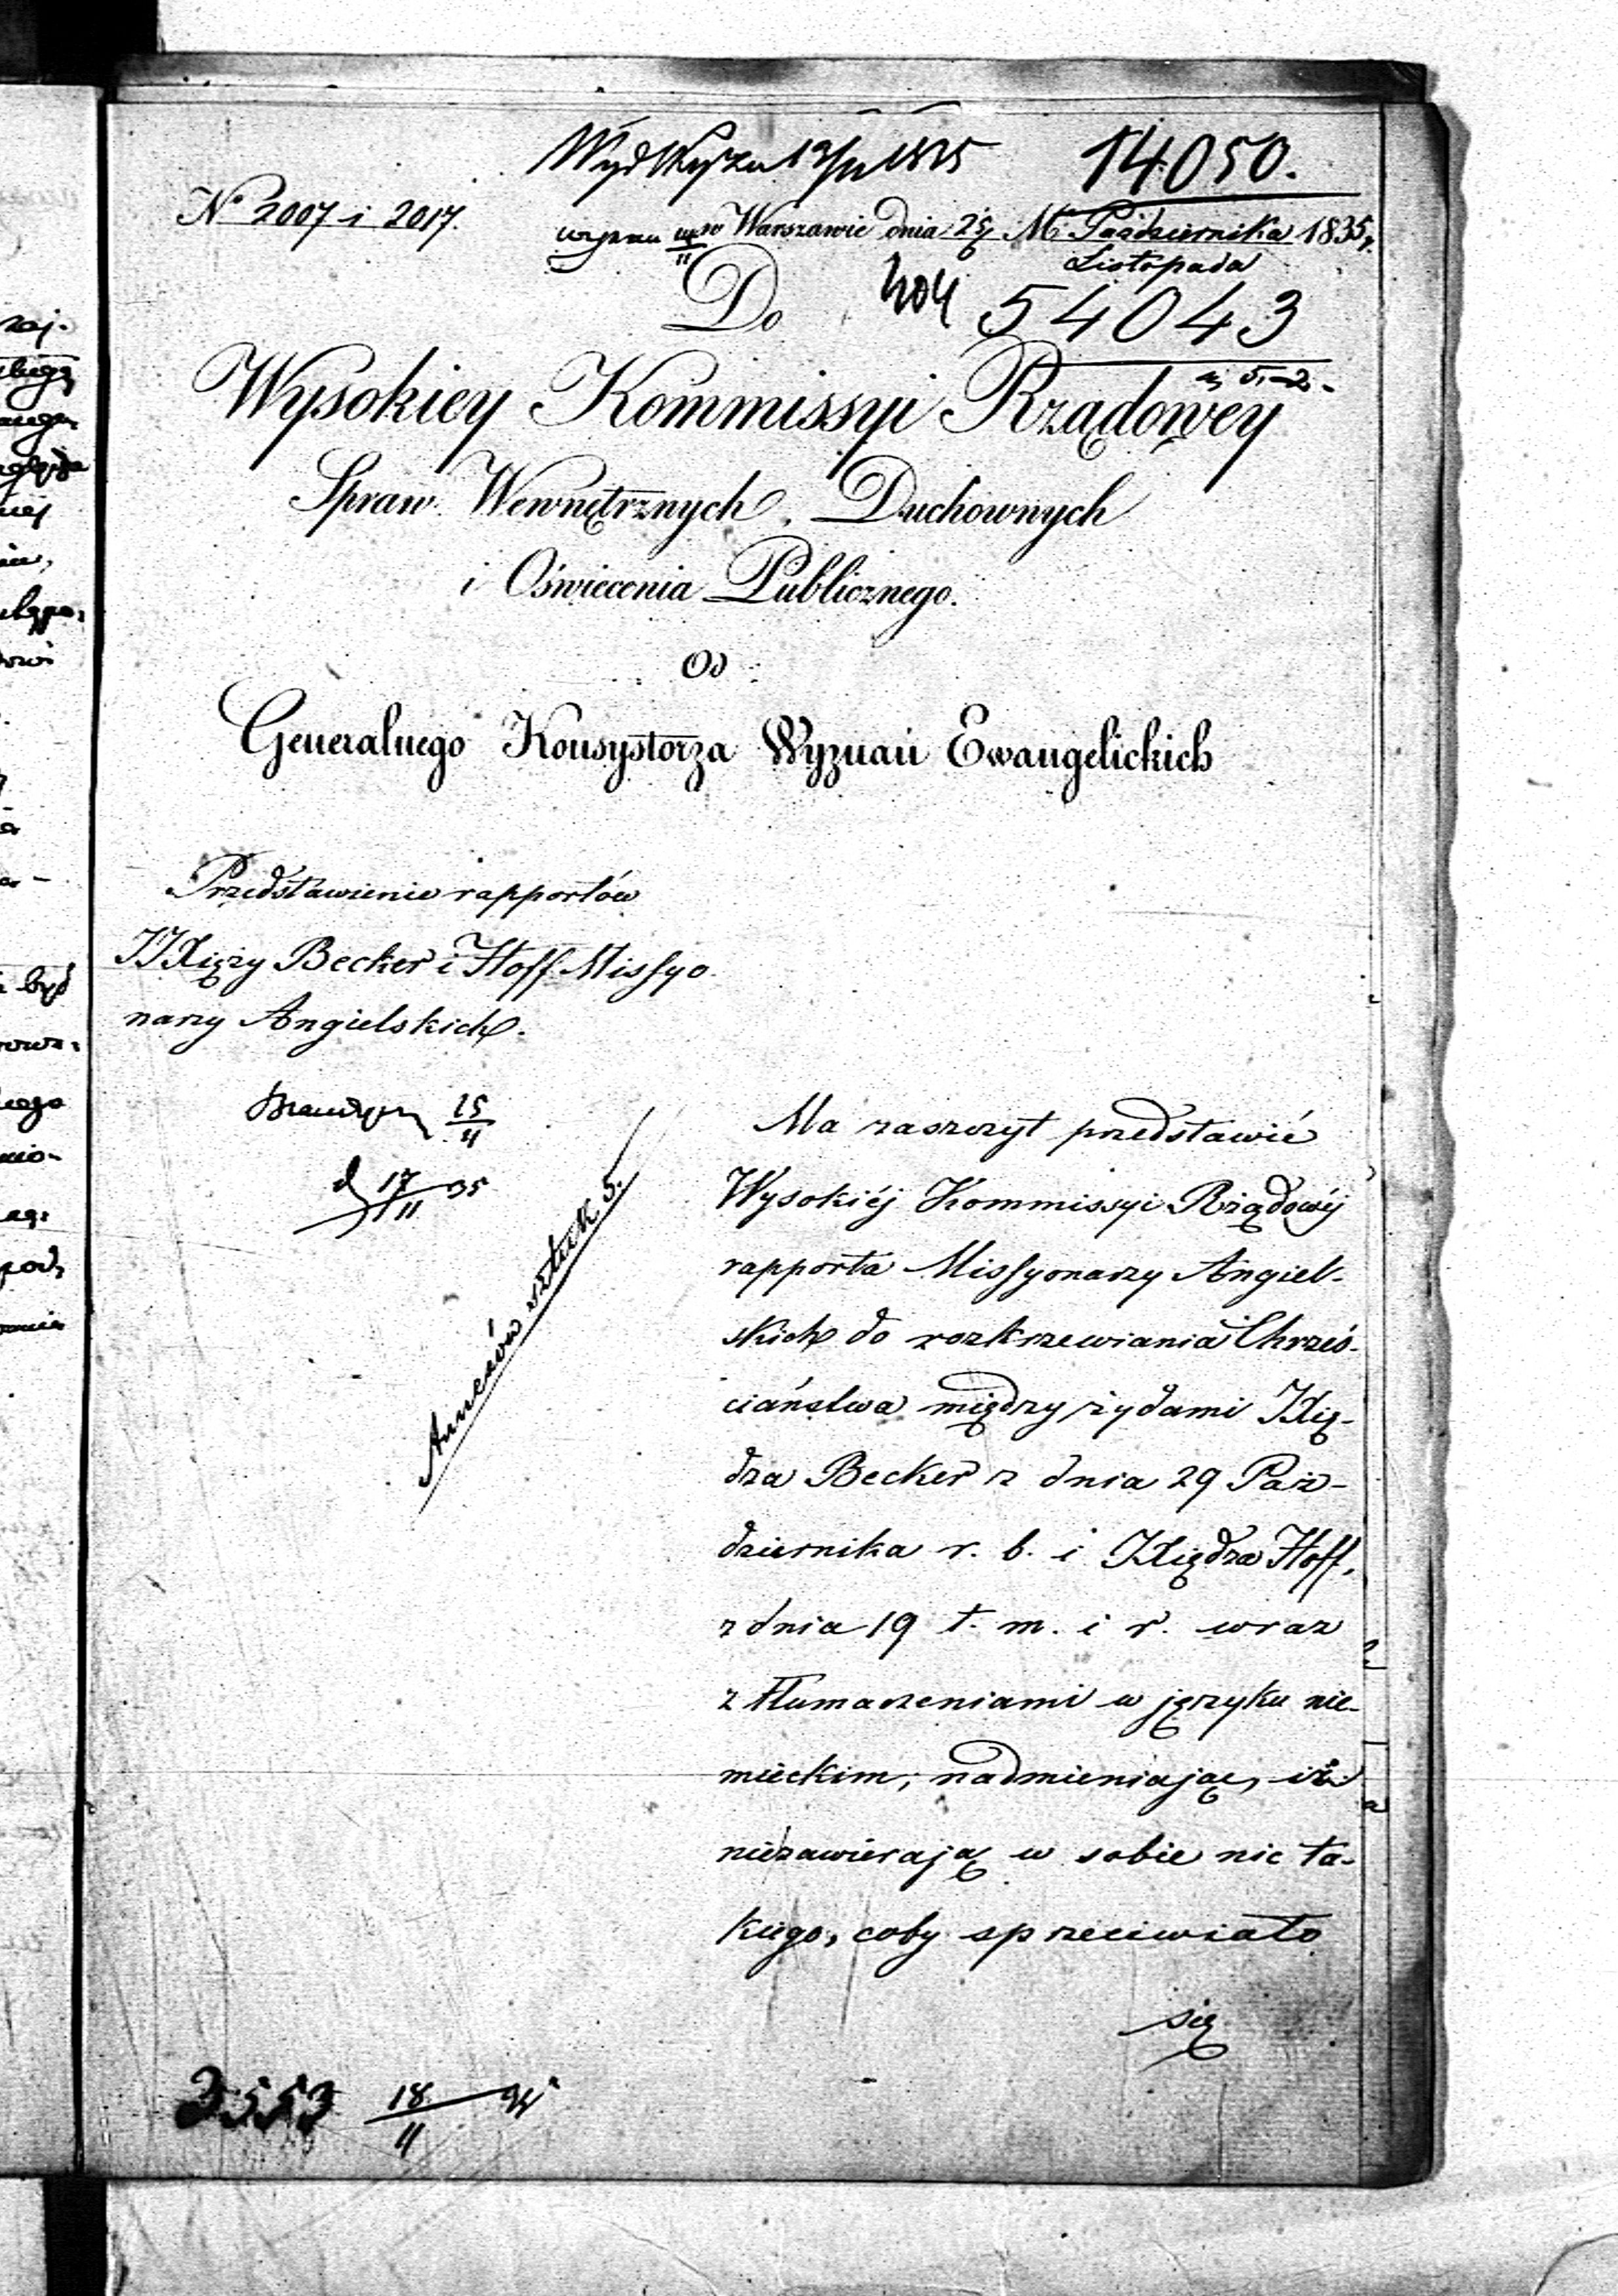 14050.
No 2007 i 2017.
w Warszawie dnia 25/6 M. Października 1835 r.
Listopada
Do
54043
Wysokiey Kommissyi Rządowey
Spraw Wewnętrznych, Duchownych
i Oświecenia Publicznego.
Od
Generalnego Konsystorza Wyznań Ewangelickich
Przedstawienie rapportów
XXięży Becker i Hoff Missyo
narzy Angielskich.
15/11
17/11 35
Annexów sztuk 5.
Ma zaszczyt przedstawić
Wysokiéj Kommissyi Rządowéj
rapporta Missyonarzy Angiel-
skich do rozkrzewiania Chrześ-
ciaństwa między żydami Xię-
dza Becker z dnia 29 Paź-
dziernika r. b. i Xiędza Hoff,
z dnia 19 t. m. i r. wraz
z tłumaczeniami w języku nie-
mieckim, nadmieniając, iż
niezawierają w sobie nic ta-
kiego, coby sprzeciwiało
się
18/11